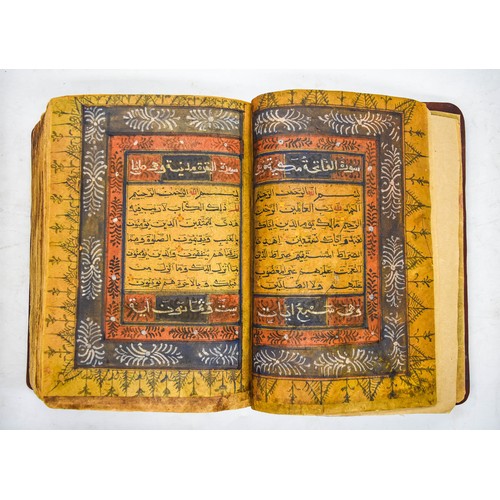 سورة الفاتحة مكية
بسم الله الرحمن الرحيم
الحمد لله رب العالمين الرحمن الرحيم
ملك يوم الدين إياك نعبد
وإياك نستعين اهدنا
الصراط المستقيم صراط الذين
أنعمت عليهم غير المغضوب
عليهم ولا الضالين
وهي سبع آيات
سورة البقرة مدنية وهي مائتا
بسم الله الرحمن الرحيم
الم ذلك الكتاب لا ريب فيه
هدى للمتقين الذين يؤمنون
بالغيب ويقيمون الصلوة ومما
رزقناهم ينفقون والذين يؤمنون بما
أنزل إليك وما أنزل من
قبلك وبالآخرة هم يوقنون
ست وثمانون آية